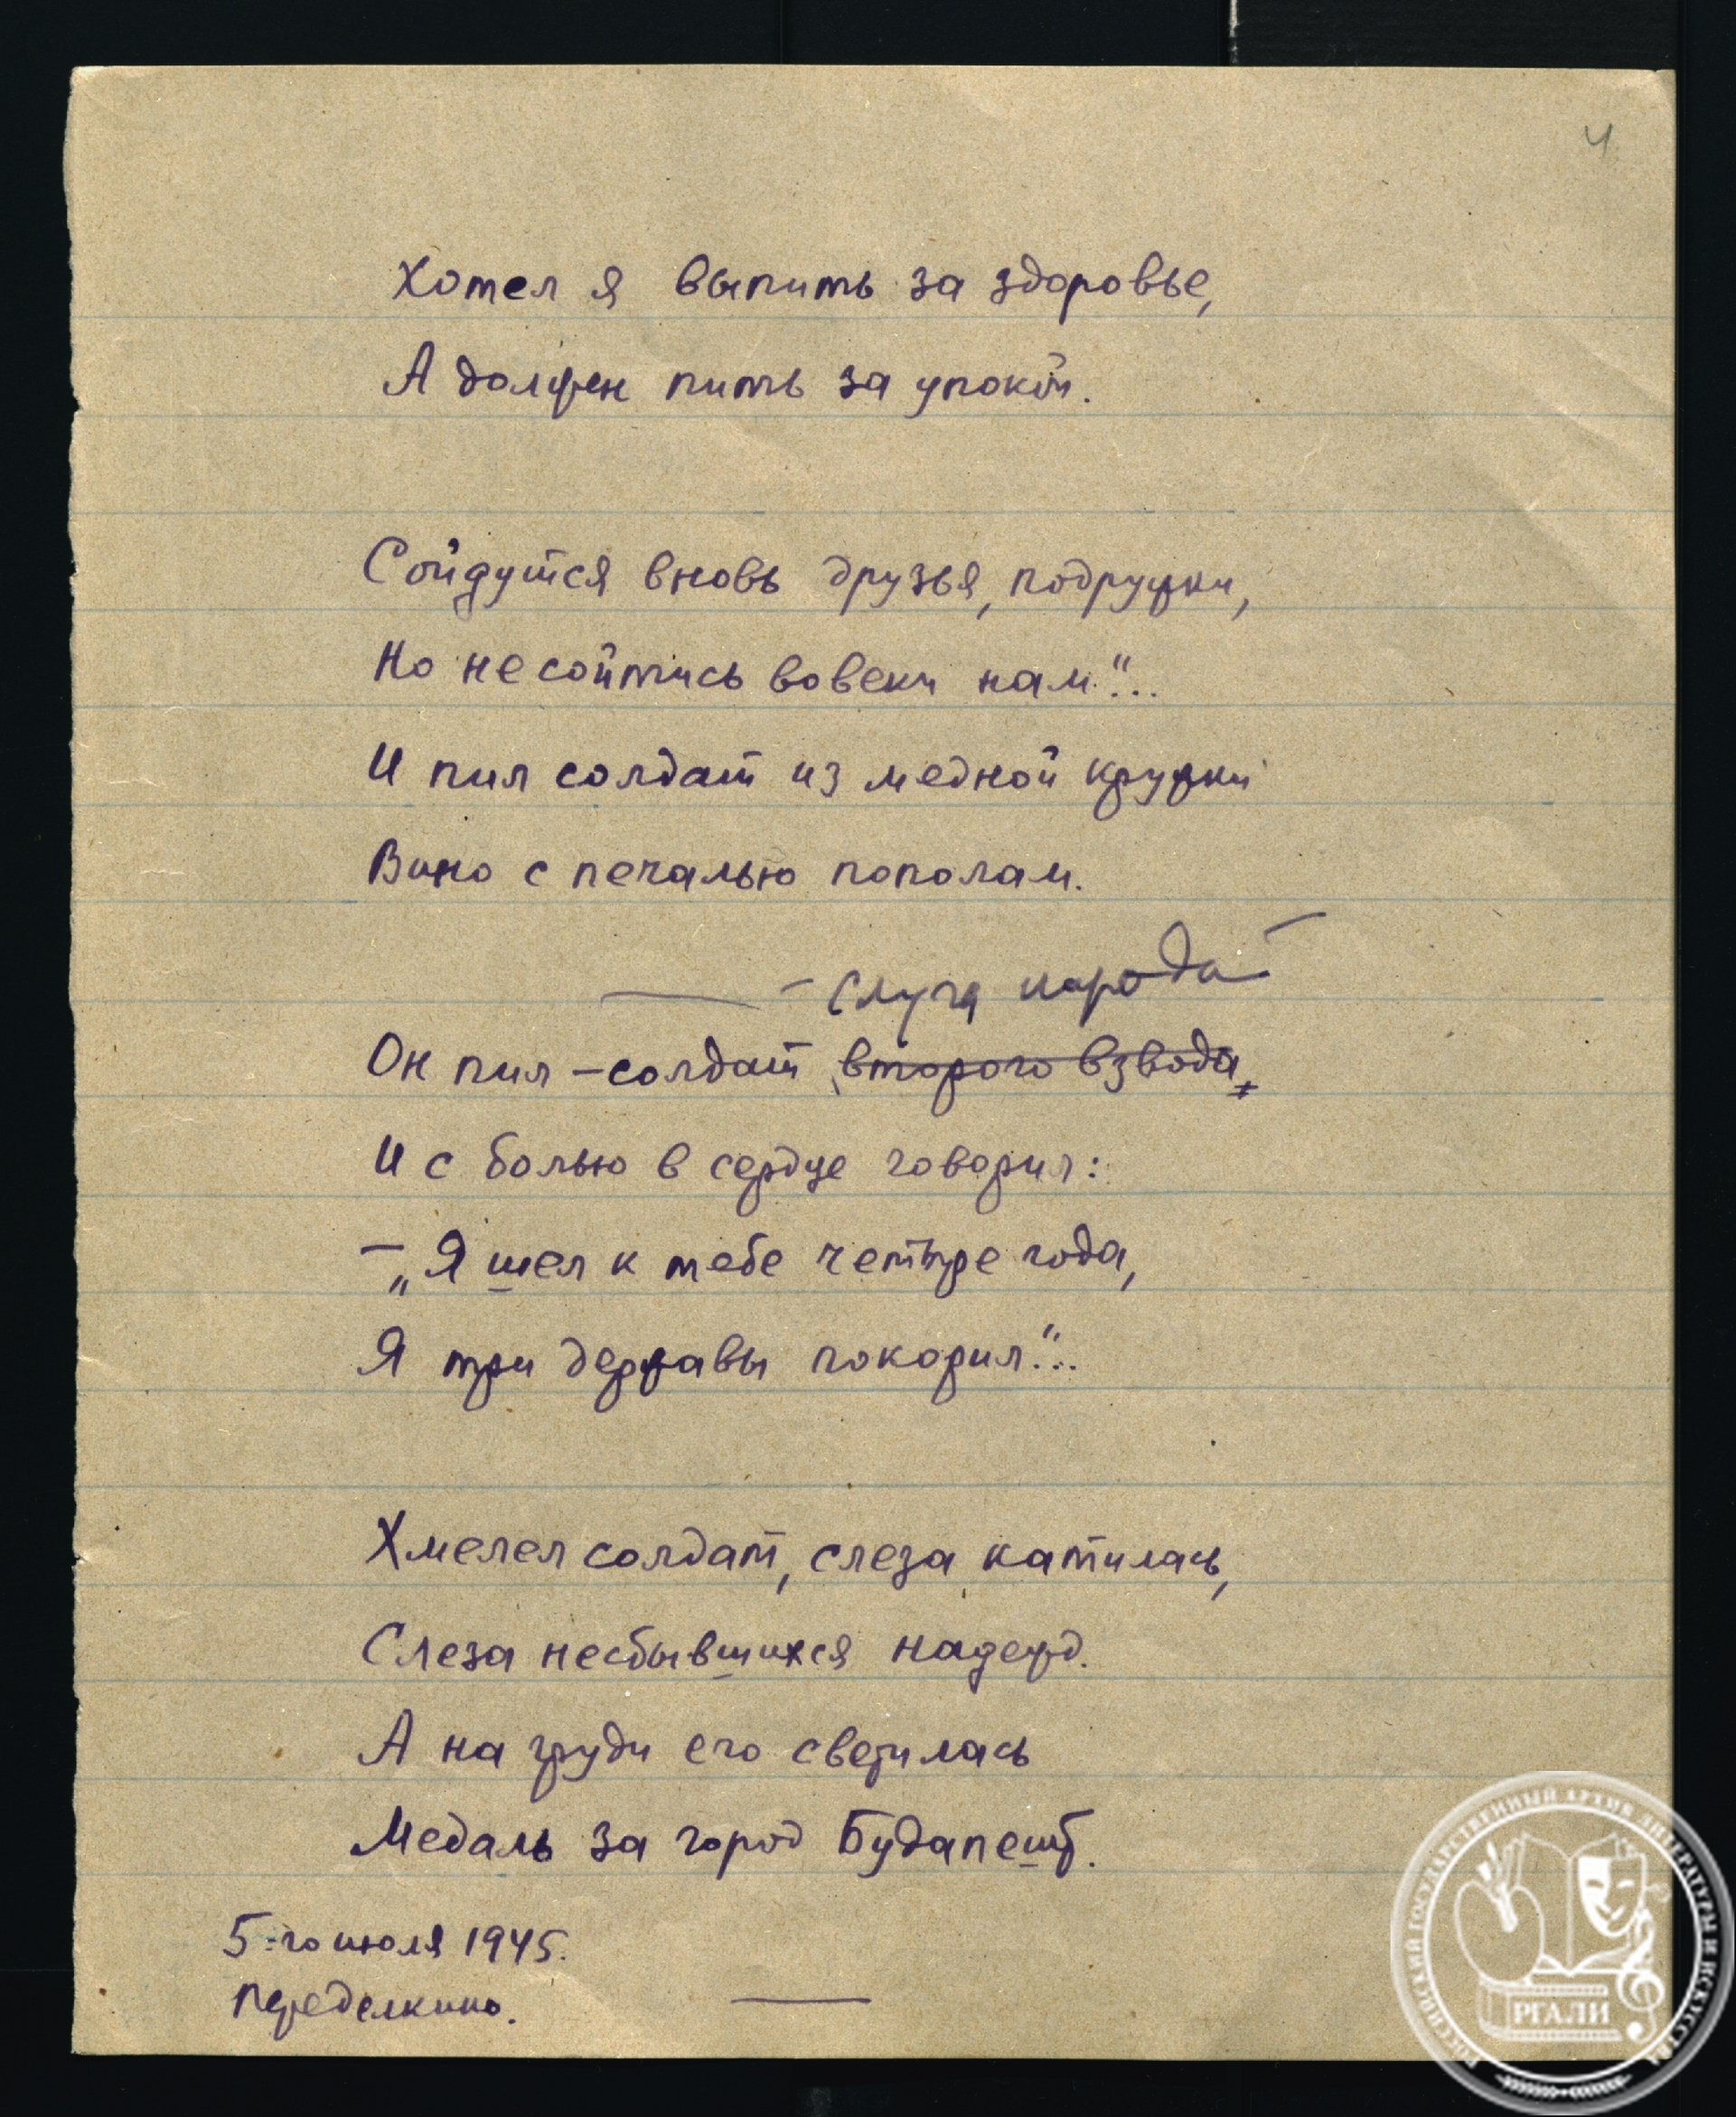 4
Хотел я выпить за здоровье,
А должен пить за упокой.
Сойдутся вновь друзья, подружки,
Но не сойтись вовеки нам“...
И пил солдат из медной кружки
Вино с печалью пополам.
— слуга народа —
Он пил – солдат второго взвода,
И с болью в сердце говорил:
– „Я шел к тебе четыре года,
Я три державы покорил“...
Хмелел солдат, слеза катилась,
Слеза несбывшихся надежд.
А на груди его светилась
Медаль за город Будапешт.
5-го июля 1945.
Переделкино.
РОССИЙСКИЙ ГОСУДАРСТВЕННЫЙ АРХИВ ЛИТЕРАТУРЫ И ИСКУССТВА
РГАЛИ